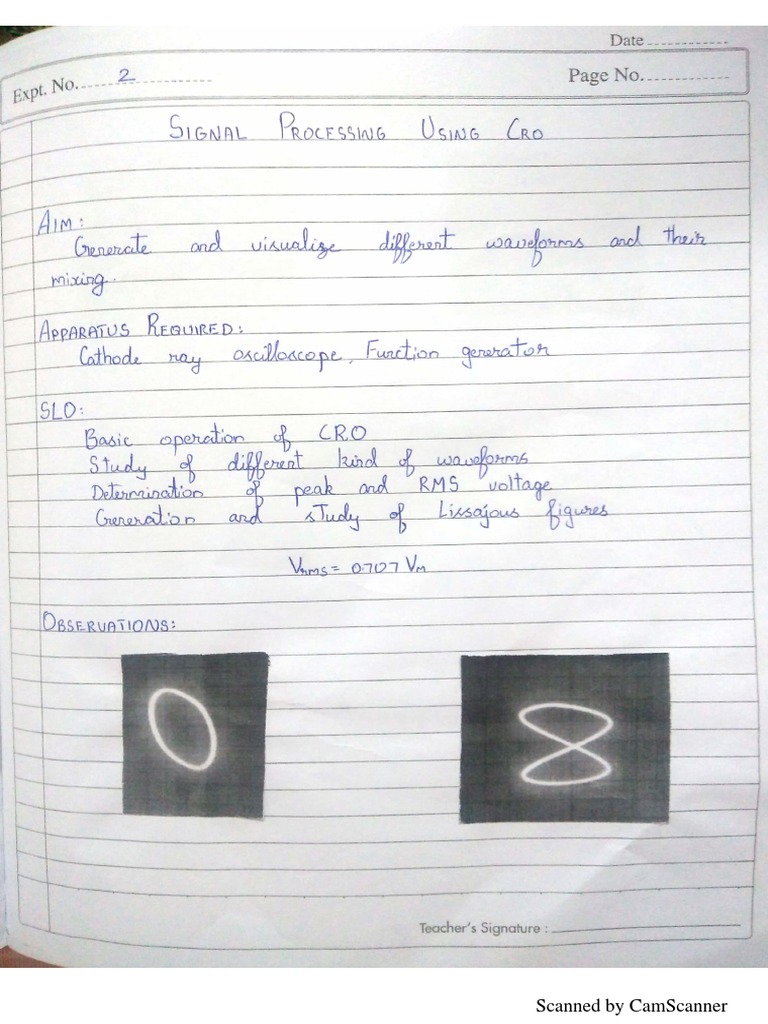 Date
Expt. No. 2
Page No.
SIGNAL PROCESSING USING CRO
AIM:
Generate and visualize different waveforms and their
mixing.
APPARATUS REQUIRED:
Cathode ray oscilloscope, Function generator
SLO:
Basic operation of CRO
Study of different kind of waveforms
Determination of peak and RMS voltage
Generation and study of Lissajous figures
Vrms = 0.707 VM
OBSERVATIONS:
Teacher's Signature :
Scanned by CamScanner